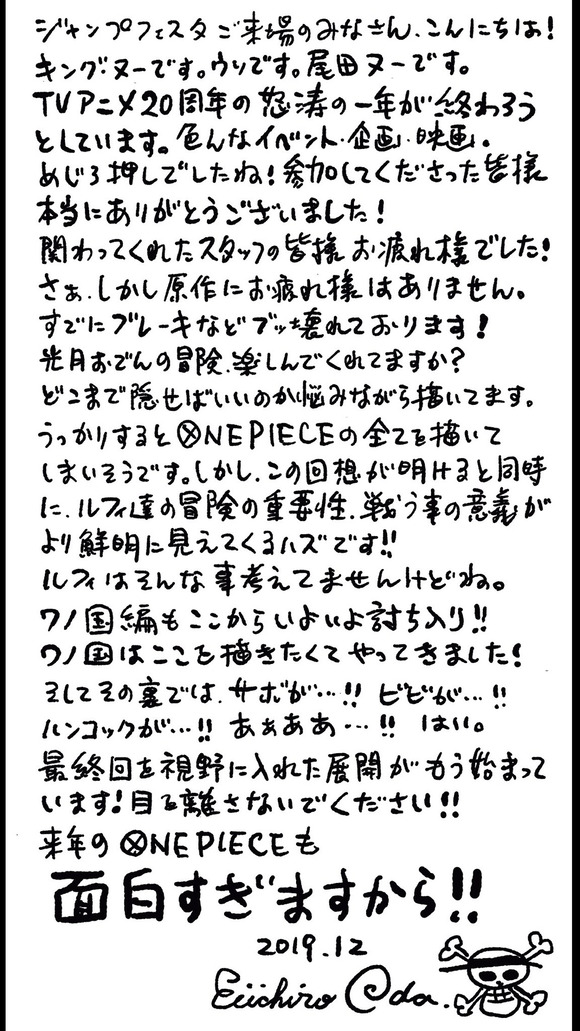 ジャンプフェスタご来場のみなさん、こんにちは!
キングヌーです。ウソです。尾田ヌーです。
TVアニメ20周年の怒涛の一年が終わろう
としています。色んなイベント・企画・映画。
めじろ押しでしたね!参加してくださった皆様
本当にありがとうございました!
関わってくれたスタッフの皆様お疲れ様でした!
さぁ、しかし原作にお疲れ様はありません。
すでにブレーキなどブッ壊れております!
光月おでんの冒険、楽しんでくれてますか?
どこまで隠せばいいのか悩みながら描いてます。
うっかりするとONE PIECEの全てを描いて
しまいそうです。しかし、この回想が明けると同時
に、ルフィ達の冒険の重要性、戦う事の意義が
より鮮明に見えてくるハズです!!
ルフィはそんな事考えてませんけどね。
ワノ国編もここからいよいよ討ち入り!!
ワノ国はここを描きたくてやってきました!
そしてその裏では、サボが…!! ビビが…!!
ハンコックが…!! あぁあぁ…!! はい。
最終回を視野に入れた展開がもう始まって
います!目を離さないでください!!
来年のONE PIECEも
面白すぎますから!!
2019.12
Eiichiro Oda.